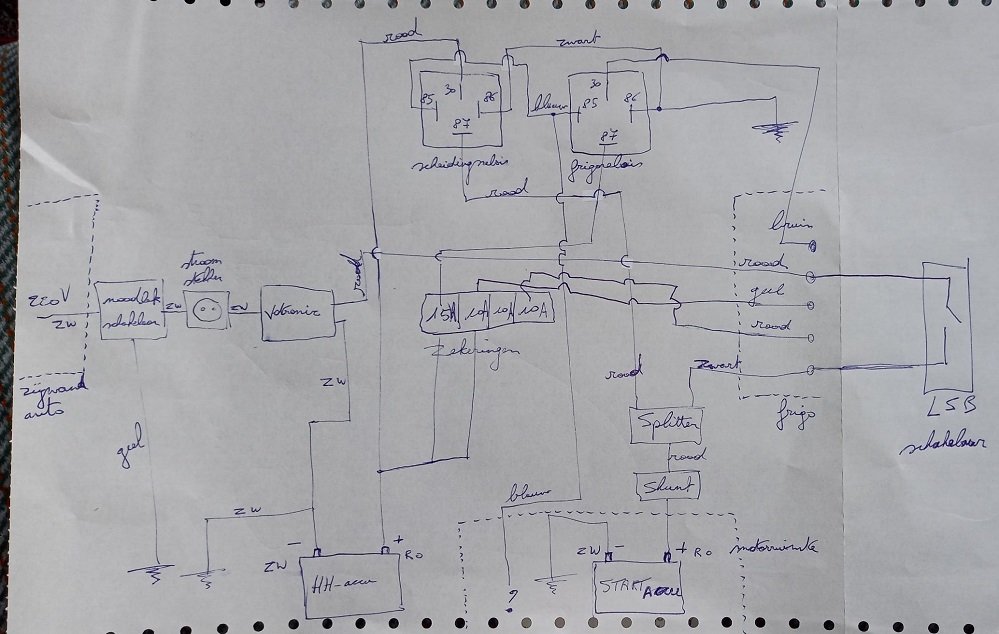 rood
zwart
30
85
86
87
scheidingsrelais
blauw
30
85
86
87
frigorelais
rood
bruin
rood
geel
rood
zwart
frigo
LSB
schakelaar
220V
ZW
zijwand
auto
noodlek
schakelaar
ZW
stroom
ZW
Votronic
rood
15A
10A
10A
10A
Zekeringen
ZW
geel
ZW
rood
Splitter
rood
Shunt
blauw
?
motorruimte
-
+
ZW
RO
HH-accu
ZW
-
+
RO
START
Accu